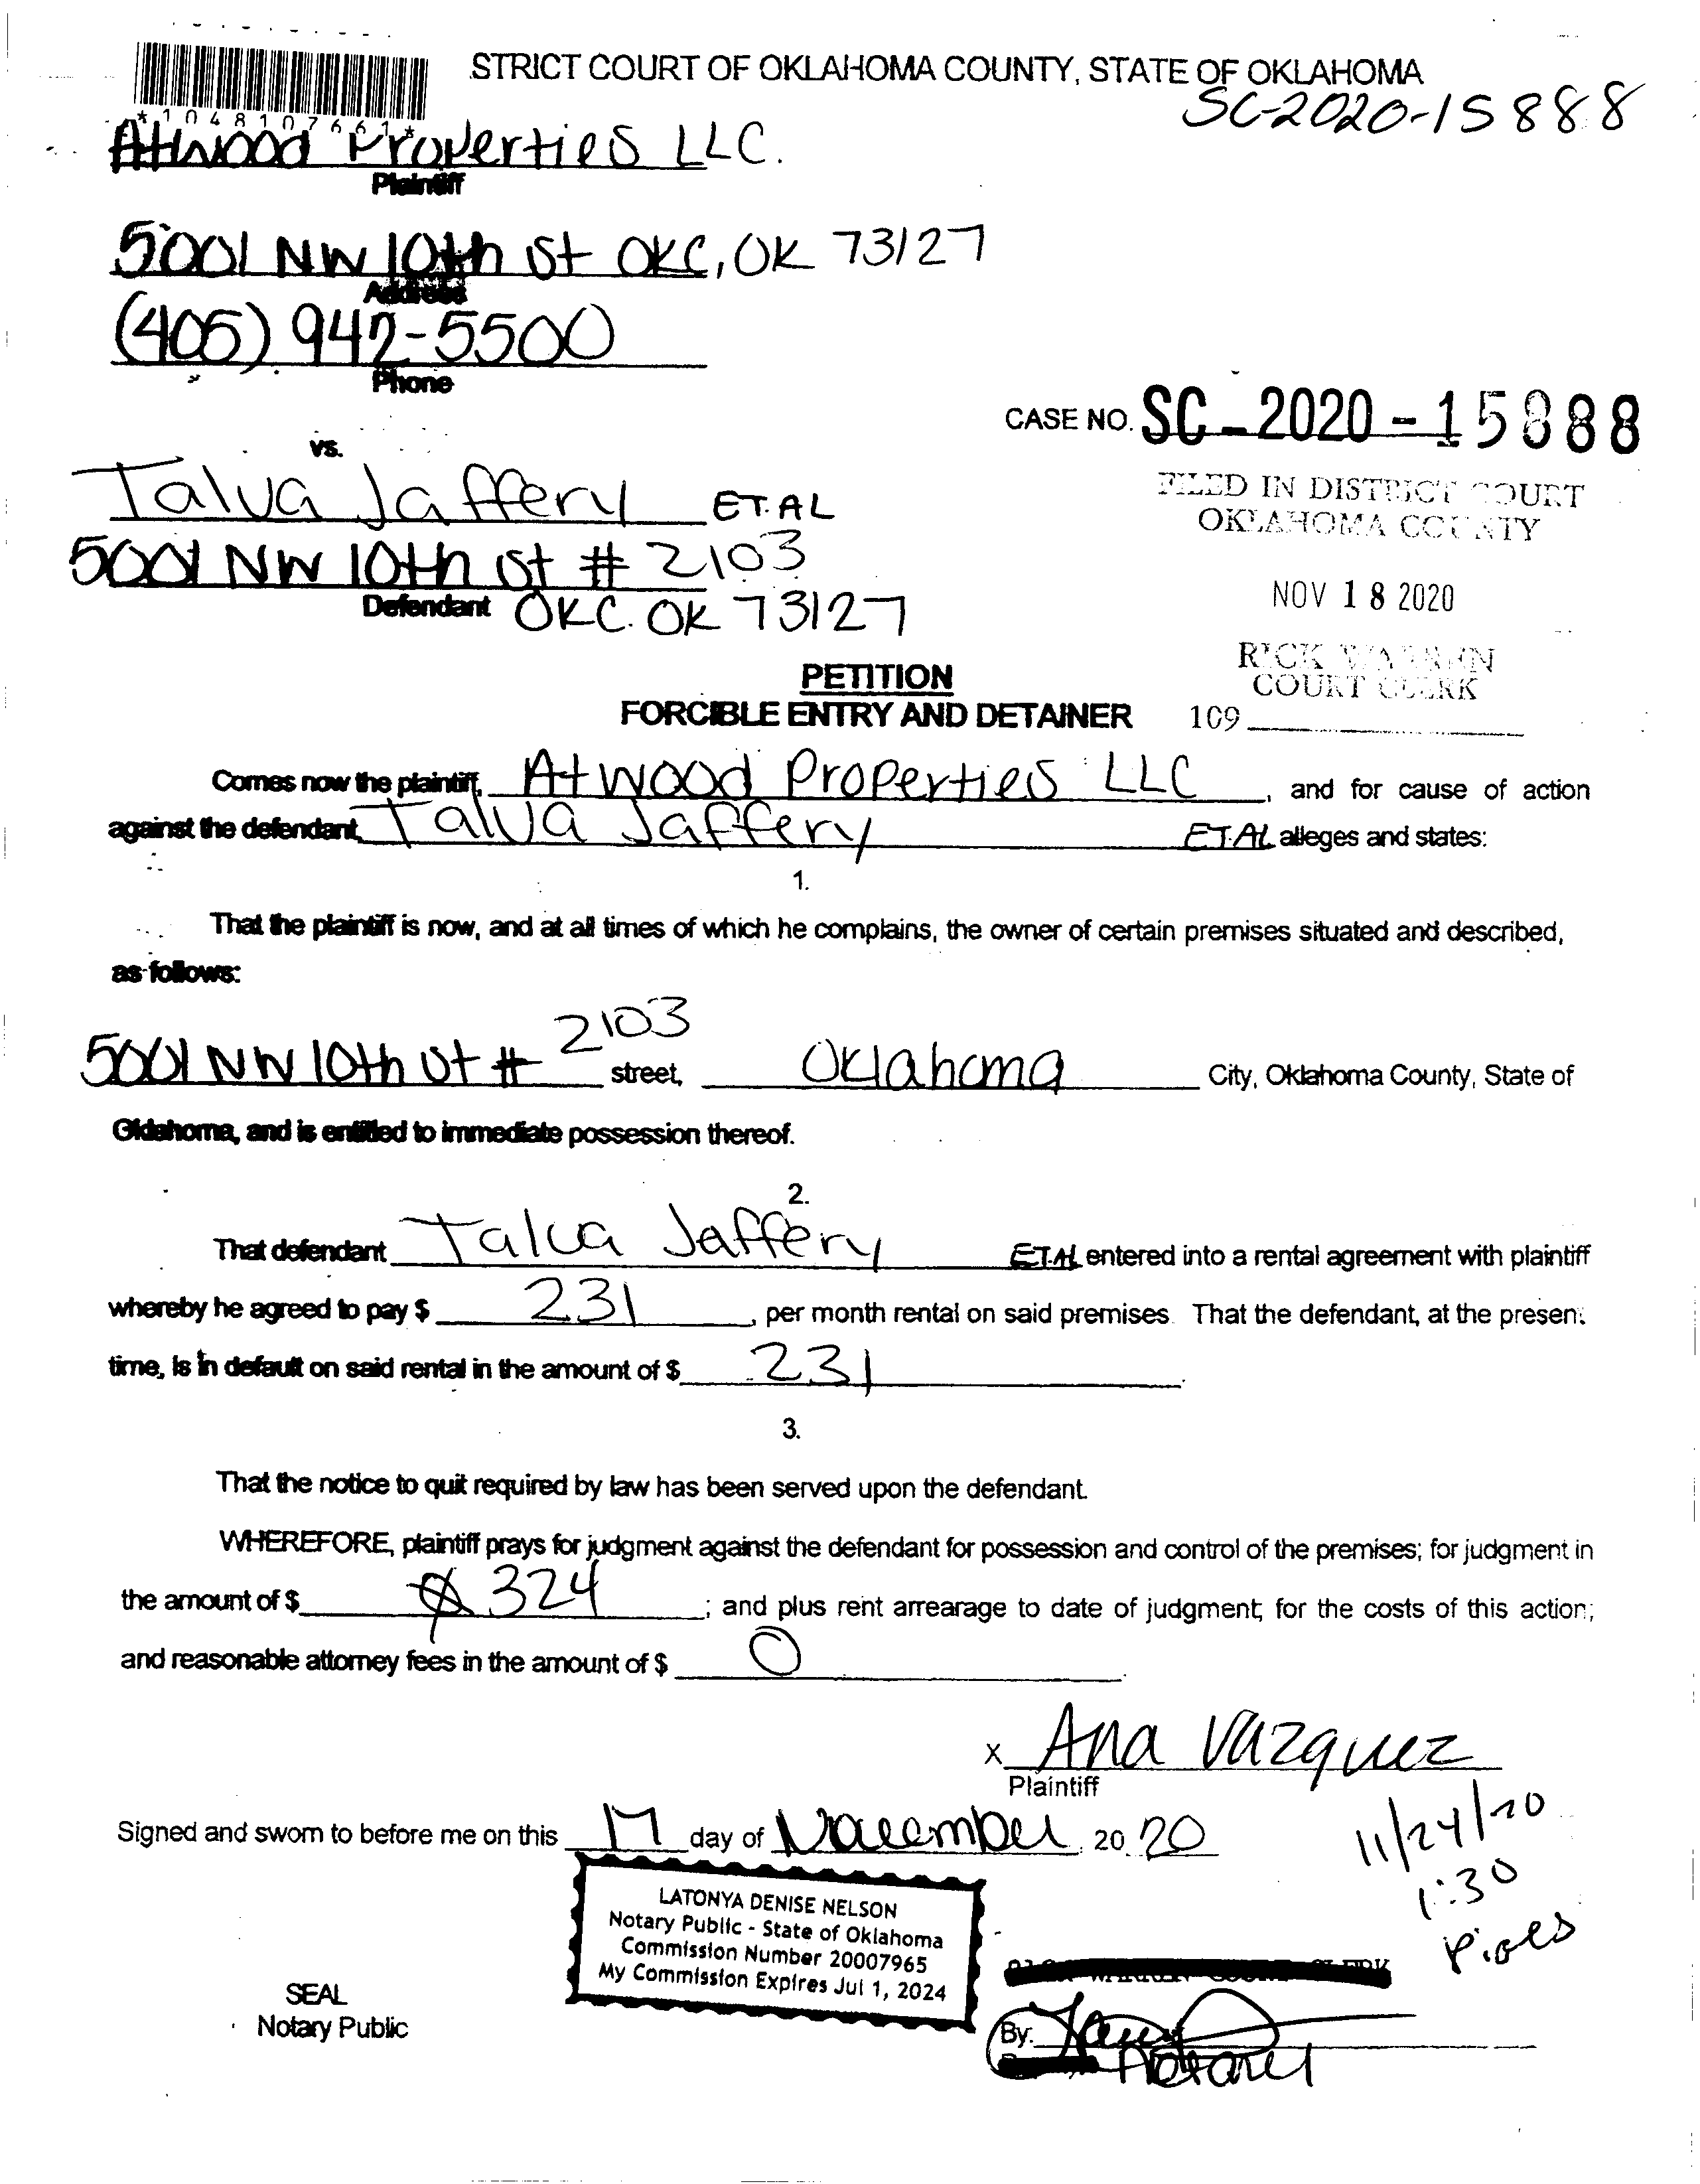 STRICT COURT OF OKLAHOMA COUNTY, STATE OF OKLAHOMA
SC-2020-15888
*1048107661*
Atwood Properties LLC.
Plaintiff
5001 NW 10th St OKC, OK 73127
Address
(405) 942-5500
Phone
CASE NO. SC-2020-15888
vs.
Talva Jaffery ET.AL
5001 NW 10th St # 2103
Defendant OKC. OK 73127
FILED IN DISTRICT COURT
OKLAHOMA COUNTY
NOV 18 2020
RICK WARREN
COURT CLERK
109
PETITION
FORCIBLE ENTRY AND DETAINER
Comes now the plaintiff, Atwood Properties LLC, and for cause of action
against the defendant, Talva Jaffery ET.AL alleges and states:
1.
That the plaintiff is now, and at all times of which he complains, the owner of certain premises situated and described,
as follows:
5001 NW 10th St # 2103 street, Oklahoma City, Oklahoma County, State of
Oklahoma, and is entitled to immediate possession thereof.
2.
That defendant Talva Jaffery ET.AL entered into a rental agreement with plaintiff
whereby he agreed to pay $ 231, per month rental on said premises. That the defendant, at the present
time, is in default on said rental in the amount of $ 231.
3.
That the notice to quit required by law has been served upon the defendant.
WHEREFORE, plaintiff prays for judgment against the defendant for possession and control of the premises; for judgment in
the amount of $ 324; and plus rent arrearage to date of judgment; for the costs of this action;
and reasonable attorney fees in the amount of $ 0.
x Ana Vazquez
Plaintiff
Signed and sworn to before me on this 17 day of November, 2020
11/24/20
1:30
LATONYA DENISE NELSON
Notary Public - State of Oklahoma
Commission Number 20007965
My Commission Expires Jul 1, 2024
SEAL
Notary Public
By:
Notary